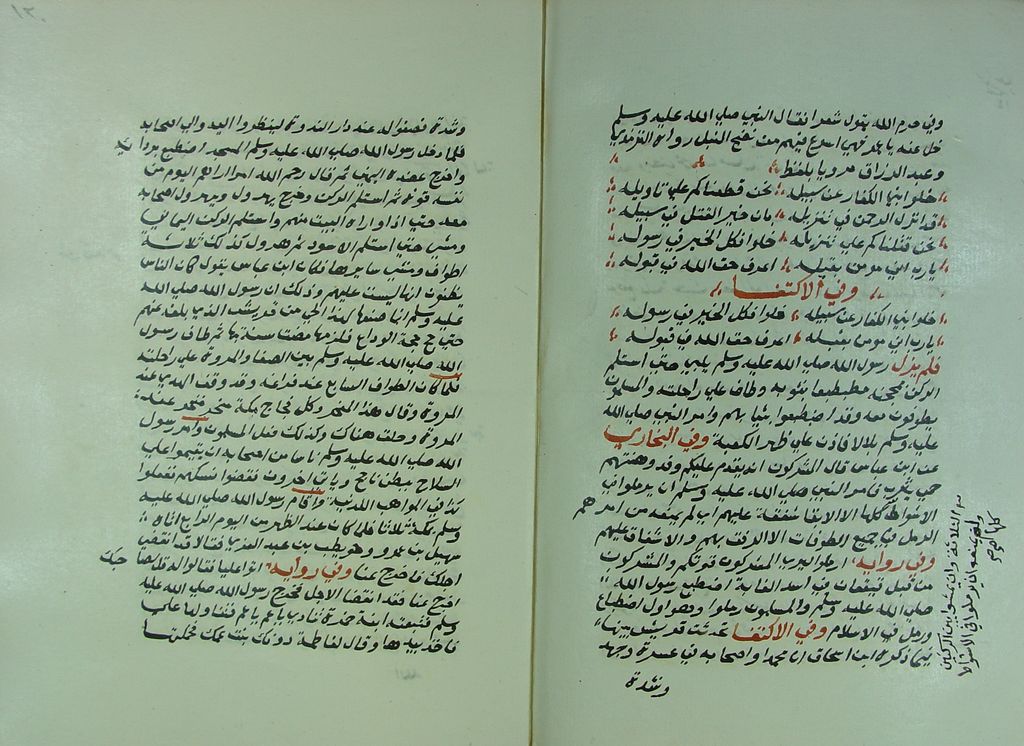 وفي حرم الله يقول شعرا فقال النبي صلى الله عليه وسلم
خل عنه يا عمر فهي اسرع فيهم من نضح النبل رواه الترمذي
وعبد الرزاق مرويا بلفظ
خلوا ابنى الكفار عن سبيله نحن قتلناكم على تاويله
قد انزل الرحمن في تنزيله بان خير القتل في سبيله
نحن قتلناكم على تنزيله خلوا فكل الخير في رسوله
يارب اني مومن بقيله اعرف حق الله في قبوله
وفي الاكتفا
خلوا بني الكفار عن سبيله خلوا فكل الخير في رسوله
يارب اني مومن بقيله اعرف حق الله في قبوله
فلم يزل رسول الله صلى الله عليه وسلم يلبي حتى استلم
الركن بمحجنه مضطبعا بثوبه وطاف على راحلته والمسلمون
يطوفون معه وقد اضطبعوا بثيابهم وامر النبي صلى الله
عليه وسلم بلالا فاذن على ظهر الكعبة وفي البخاري
عن ابن عباس قال المشركون انه يقدم عليكم وفد وهنتهم
حمى يثرب فامر النبي صلى الله عليه وسلم ان يرملوا في
الاشواط كلها الا الابقا شفقة عليهم اي لم يمنعه من امرهم
الرمل في جميع الطوفات الا الرفق بهم والاشفاق عليهم
وفي رواية ارملوا ليري المشركون قوتكم والمشركون
من قبل قيقعان في اسد الغابة اضطبع رسول الله
صلى الله عليه وسلم والمسلمون ورملوا وهو اول اضطباع
ورمل في الاسلام وفي الاكتفا تحدثت قريش بينها
فيما ذكره ابن اسحاق ان محمدا واصحابه في عسرة وجهد
وشدة
وشدة فصفوا له عند دار الندوة لينظروا اليه والى اصحابه
فلما دخل رسول الله صلى الله عليه وسلم المسجد اضطبع بردائه
واخرج عضده اليمنى ثم قال رحم الله امرا اراهم اليوم من
نفسه قوة ثم استلم الركن وخرج يهرول ويهرول اصحابه
معه حتى اذا واراه البيت منهم واستلم الركن اليماني
ومشى حتى استلم الاسود ثم هرول كذلك ثلاثة
اطواف ومشى سايرها فكان ابن عباس يقول كان الناس
يظنون انها ليست عليهم وذلك ان رسول الله صلى الله
عليه وسلم انما صنعها لهذا الحي من قريش الذي بلغه عنهم
حتى حج حجة الوداع فلزمها فمضت سنة بها ثم طاف رسول
الله صلى الله عليه وسلم بين الصفا والمروة على راحلته
فلما كان الطواف السابع عند فراغه وقد وقف الهدي عند
المروة وقال هذا المنحر وكل فجاج مكة منحر فنحر عند
المروة وحلق هناك وكذلك فعل المسلمون وامر رسول
الله صلى الله عليه وسلم ناسا من اصحابه ان يقيموا على
السلاح ببطن ياجج وياتي اخرون فقضوا نسكهم ففعلوا
كذا في المواهب اللدنية واقام رسول الله صلى الله عليه
وسلم بمكة ثلاثا فلما كان عند الظهر من اليوم الرابع اتاه
سهيل بن عمرو وحويطب بن عبد العزى فقالا قد انقضى
اجلك فاخرج عنا وفي رواية اتوا عليا فقالوا قل لصاحبك
اخرج عنا فقد انقضا الاجل فخرج رسول الله صلى الله عليه
وسلم فتبعته ابنة حمزة تنادي يا عم يا عم فتناولها علي
فاخذ بيدها وقال لفاطمة دونك بنت عمك فحملتها